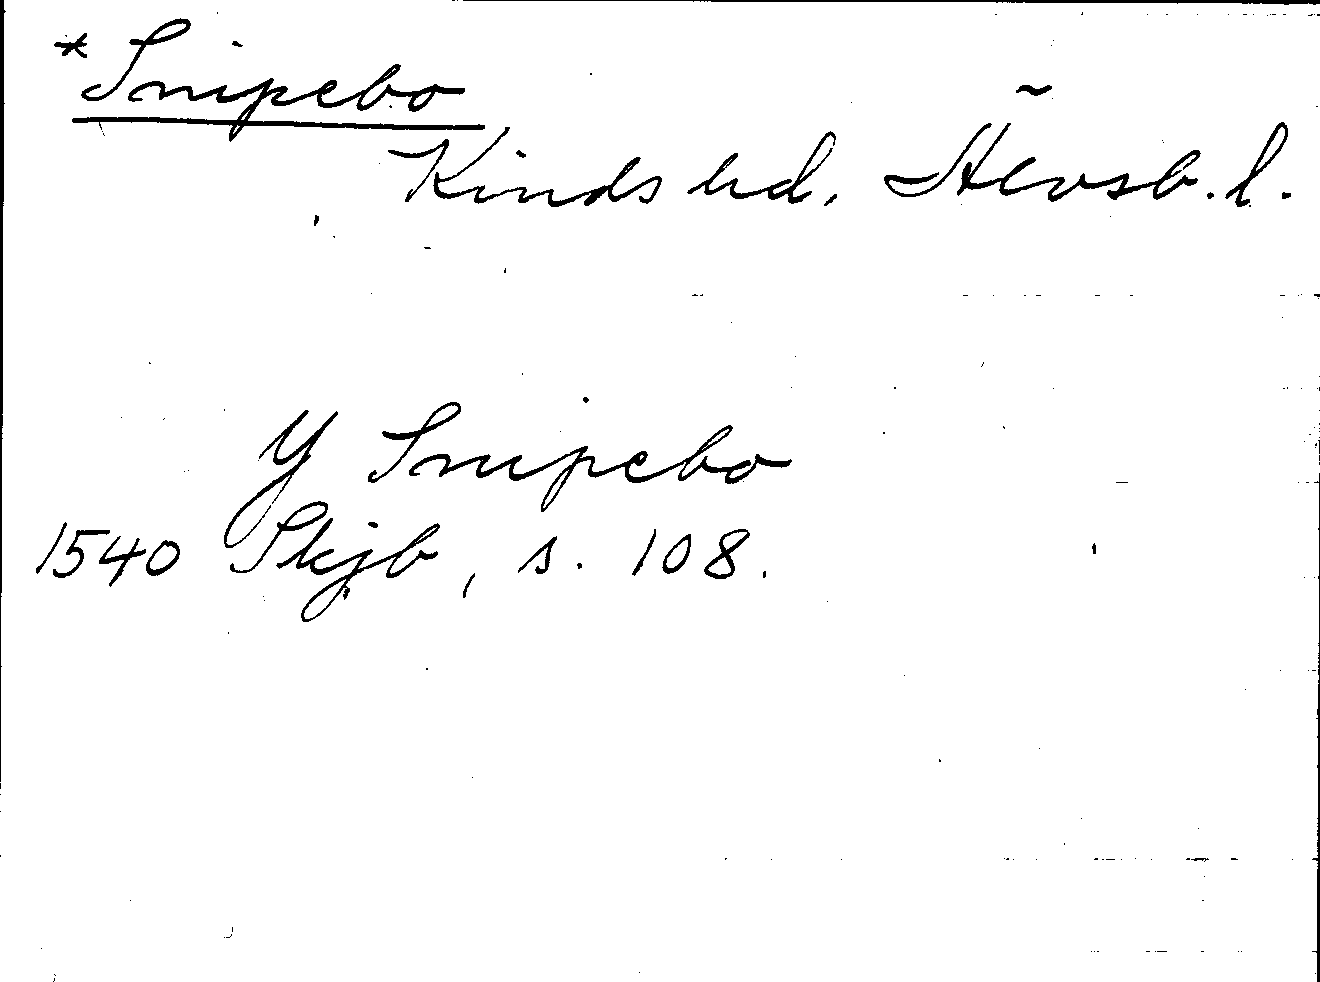 *Snipebo
Kinds hd, Älvsb. l.
Y Snipebo
1540 Skjb, s. 108.